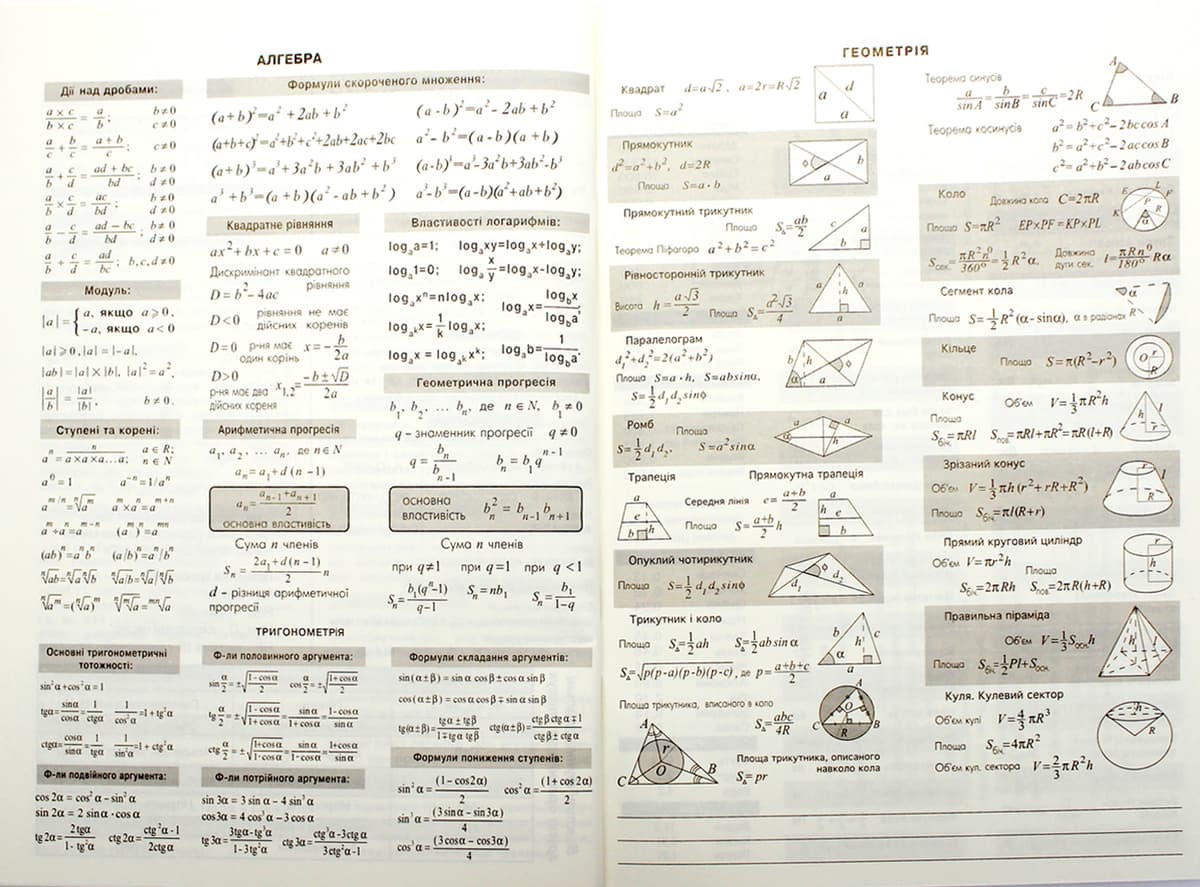 АЛГЕБРА
Дії над дробами:
a × c / b × c = a / b ; b ≠ 0 c ≠ 0
a/c + b/c = a + b / c ; c ≠ 0
a/b + c/d = ad + bc / bd ; b ≠ 0 d ≠ 0
a/b × c/d = ac / bd b ≠ 0 d ≠ 0
a/b − c/d = ad − bc / bd ; b ≠ 0 d ≠ 0
a/b ÷ c/d = ad / bc ; b, c, d ≠ 0
Модуль:
|a| = { a, якщо a ⩾ 0,
−a, якщо a < 0
|a| ⩾ 0, |a| = |−a|,
|ab| = |a| × |b|, |a|² = a²,
|a/b| = |a| / |b| , b ≠ 0.
Ступені та корені:
aⁿ = a×a×a...a; a ∈ R; n ∈ N
a⁰ = 1 a⁻ⁿ = 1/aⁿ
Формули скороченого множення:
(a + b)² = a² + 2ab + b² (a - b)² = a² - 2ab + b²
(a+b+c)² = a²+b²+c²+2ab+2ac+2bc a² - b² = (a - b)(a + b)
(a + b)³ = a³ + 3a²b + 3ab² + b³ (a-b)³ = a³-3a²b+3ab²-b³
a³ + b³ = (a + b)(a² - ab + b²) a³-b³ = (a-b)(a²+ab+b²)
Квадратне рівняння
ax² + bx + c = 0 a ≠ 0
Дискримінант квадратного
рівняння
D = b² − 4ac
D < 0 рівняння не має
дійсних коренів
D = 0 р-ня має
один корінь x = − b/2a
D > 0
р-ня має два
дійсних кореня x₁,₂ = −b ± √D / 2a
Властивості логарифмів:
logₐa=1; logₐxy=logₐx+logₐy;
logₐ1=0; logₐ x/y =logₐx-logₐy;
logₐxⁿ=nlogₐx; logₐx= log_b x / log_b a ;
log_aᵏ x= 1/k logₐx;
logₐx = log_aᵏ xᵏ; logₐb= 1 / log_b a
Арифметична прогресія
a₁, a₂, ... aₙ, де n ∈ N
aₙ = a₁ + d (n − 1)
aₙ = aₙ₋₁ + aₙ₊₁ / 2
основна властивість
Сума n членів
Sₙ = 2a₁ + d(n − 1) / 2 n
d - різниця арифметичної
прогресії
Геометрична прогресія
b₁, b₂, ... bₙ, де n ∈ N, b₁ ≠ 0
q - знаменник прогресії q ≠ 0
q = bₙ / bₙ₋₁ bₙ = b₁qⁿ⁻¹
основна
властивість bₙ² = bₙ₋₁ bₙ₊₁
Сума n членів
при q≠1 при q=1 при q <1
Sₙ= b₁(qⁿ-1) / q-1 Sₙ = nb₁ Sₙ = b₁ / 1-q
(ab)ⁿ=aⁿbⁿ (a/b)ⁿ=aⁿ/bⁿ
ⁿ√ab=ⁿ√a ⁿ√b ⁿ√a/b=ⁿ√a/ⁿ√b
ТРИГОНОМЕТРІЯ
Основні тригонометричні
тотожності:
sin²α+cos²α = 1
tgα= sinα/cosα = 1/ctgα 1/cos²α =1+tg²α
ctgα= cosα/sinα = 1/tgα 1/sin²α =1+ ctg²α
Ф-ли подвійного аргумента:
cos 2α = cos²α − sin²α
sin 2α = 2 sinα · cosα
tg 2α= 2tgα / 1- tg²α ctg 2α= ctg²α-1 / 2ctgα
Ф-ли половинного аргумента:
sin α/2 = ±√ 1−cosα / 2 cos α/2 = ±√ 1+cosα / 2
tg α/2 = ±√ 1-cosα / 1+cosα = sinα / 1+cosα = 1-cosα / sinα
ctg α/2 = ±√ 1+cosα / 1-cosα = sinα / 1-cosα = 1+cosα / sinα
Ф-ли потрійного аргумента:
sin 3α = 3 sin α − 4 sin³ α
cos3α = 4 cos³ α − 3 cos α
tg 3α= 3tgα-tg³α / 1-3tg²α ctg 3α= ctg³α-3ctgα / 3ctg²α-1
Формули складання аргументів:
sin (α ± β) = sin α cos β ± cos α sin β
cos (α ± β) = cos α cos β ∓ sin α sin β
tg(α±β)= tgα ± tgβ / 1∓tgα tgβ ctg(α±β)= ctgβ ctgα ∓ 1 / ctgβ ± ctgα
Формули пониження ступенів:
sin²α = (1−cos2α) / 2 cos²α = (1+ cos 2α) / 2
sin³α = (3sinα − sin3α) / 4
cos³α = (3cosα − cos3α) / 4
ГЕОМЕТРІЯ
Квадрат d=a√2 , a=2r=R√2
Площа S=a²
Прямокутник
d²=a²+b², d=2R
Площа S=a · b
Прямокутний трикутник
Площа S= ab/2
Теорема Піфагора a²+b²=c²
Рівносторонній трикутник
Висота h= a√3 / 2 Площа S= a²√3 / 4
Паралелограм
d₁²+d₂²=2(a²+b²)
Площа S=a · h, S=absinα,
S= 1/2 d₁d₂sinϕ
Ромб Площа
S= 1/2 d₁d₂ S=a²sinα
Трапеція Прямокутна трапеція
Середня лінія e= a+b / 2
Площа S= a+b / 2 h
Опуклий чотирикутник
Площа S= 1/2 d₁d₂sinϕ
Трикутник і коло
Площа S= 1/2 ah S= 1/2 ab sin α
S=√p(p-a)(p-b)(p-c), де p= a+b+c / 2
Площа трикутника, вписаного в коло
S= abc / 4R
Площа трикутника, описаного
навколо кола
S= pr
Теорема синусів
a/sinA = b/sinB = c/sinC =2R
Теорема косинусів
a²= b²+c²− 2bccos A
b²= a²+c²− 2accos B
c²= a²+b²− 2abcos C
Коло Довжина кола C=2πR
Площа S=πR² EP×PF=KP×PL
Sсек.= πR²n⁰ / 360° = 1/2 R²α, Довжина
дуги сек. l= πRn⁰ / 180° Rα
Сегмент кола
Площа S= 1/2 R²(α- sinα), α в радіанах
Кільце
Площа S=π(R²−r²)
Конус Об'єм V= 1/3 πR²h
Площа
Sбіч.=πRl Sпов.=πRl+πR²=πR(l+R)
Зрізаний конус
Об'єм V= 1/3 πh(r²+ rR+R²)
Площа Sбіч.=πl(R+r)
Прямий круговий циліндр
Об'єм V=πr²h
Площа
Sбіч.=2πRh Sпов=2πR(h+R)
Правильна піраміда
Об'єм V= 1/3 Sосн.h
Площа Sбіч.= 1/2 Pl+Sосн.
Куля. Кулевий сектор
Об'єм кулі V= 4/3 πR³
Площа Sбіч.=4πR²
Об'єм кул. сектора V= 2/3 πR²h